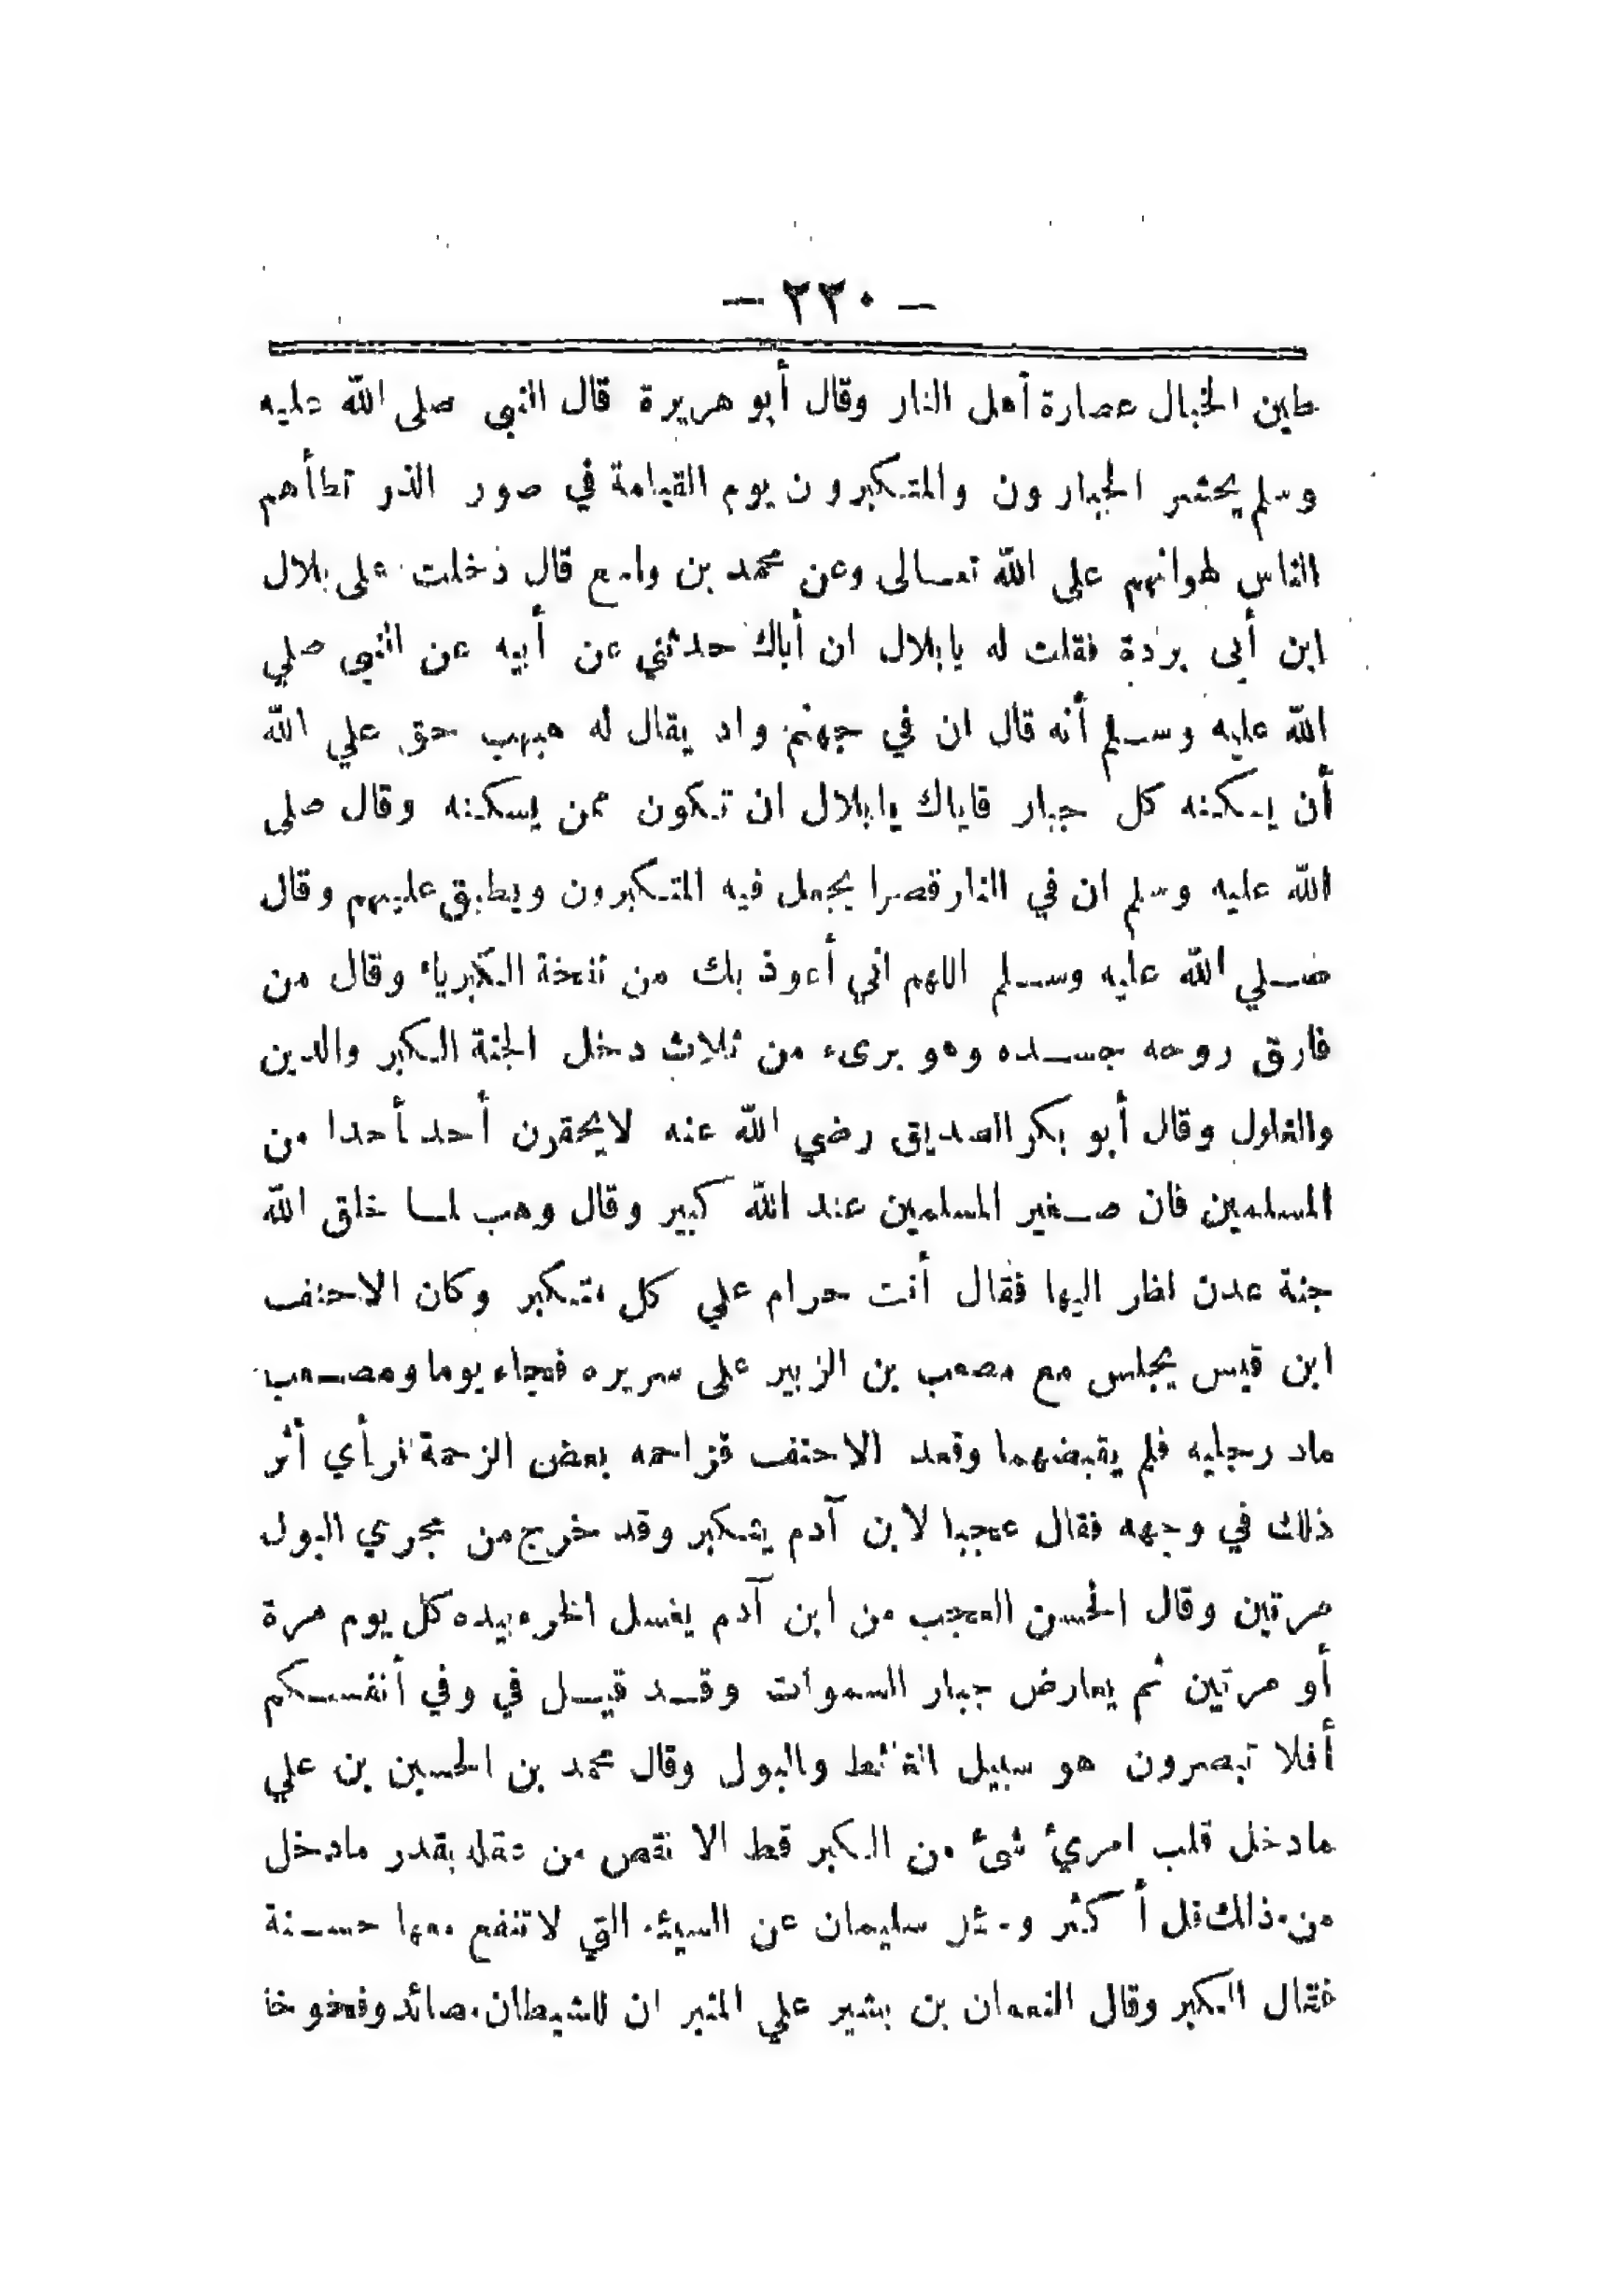 — ٢٣٠ —
طين الخبال عصارة أهل النار وقال أبو هريرة قال النبي صلى الله عليه
وسلم يحشر الجبارون والمتكبرون يوم القيامة في صور الذر تطأهم
الناس لهوانهم على الله تعالى وعن محمد بن واسع قال دخلت على بلال
ابن أبى بردة فقلت له يابلال ان أباك حدثني عن أبيه عن النبي صلي
الله عليه وسلم أنه قال ان في جهنم واد يقال له هبهب حق علي الله
أن يسكنه كل جبار فاياك يابلال ان تكون ممن يسكنه وقال صلى
الله عليه وسلم ان في النار قصرا يجعل فيه المتكبرون ويطبق عليهم وقال
صلي الله عليه وسلم اللهم اني أعوذ بك من نفخة الكبرياء وقال من
فارق روحه جسده وهو برىء من ثلاث دخل الجنة الكبر والدين
والغلول وقال أبو بكر الصديق رضي الله عنه لايحقرن أحد أحدا من
المسلمين فان صغير المسلمين عند الله كبير وقال وهب لما خلق الله
جنة عدن نظر اليها فقال أنت حرام علي كل متكبر وكان الاحنف
ابن قيس يجلس مع مصعب بن الزبير على سريره فجاء يوما ومصعب
ماد رجليه فلم يقبضهما وقعد الاحنف فزاحمه بعض الزحمة فرأي أثر
ذلك في وجهه فقال عجبا لابن آدم يتكبر وقد خرج من مجري البول
مرتين وقال الحسن العجب من ابن آدم يغسل الخرء بيده كل يوم مرة
أو مرتين ثم يعارض جبار السموات وقد قيل في وفي أنفسكم
أفلا تبصرون هو سبيل الغائط والبول وقال محمد بن الحسين بن علي
مادخل قلب امريء شئ من الكبر قط الا نقص من عقله بقدر مادخل
من ذلك قل أو كثر وسئل سليمان عن السيئة التي لاتنفع معها حسنة
فقال الكبر وقال النعمان بن بشير علي المنبر ان للشيطان مصائد وفخوخا